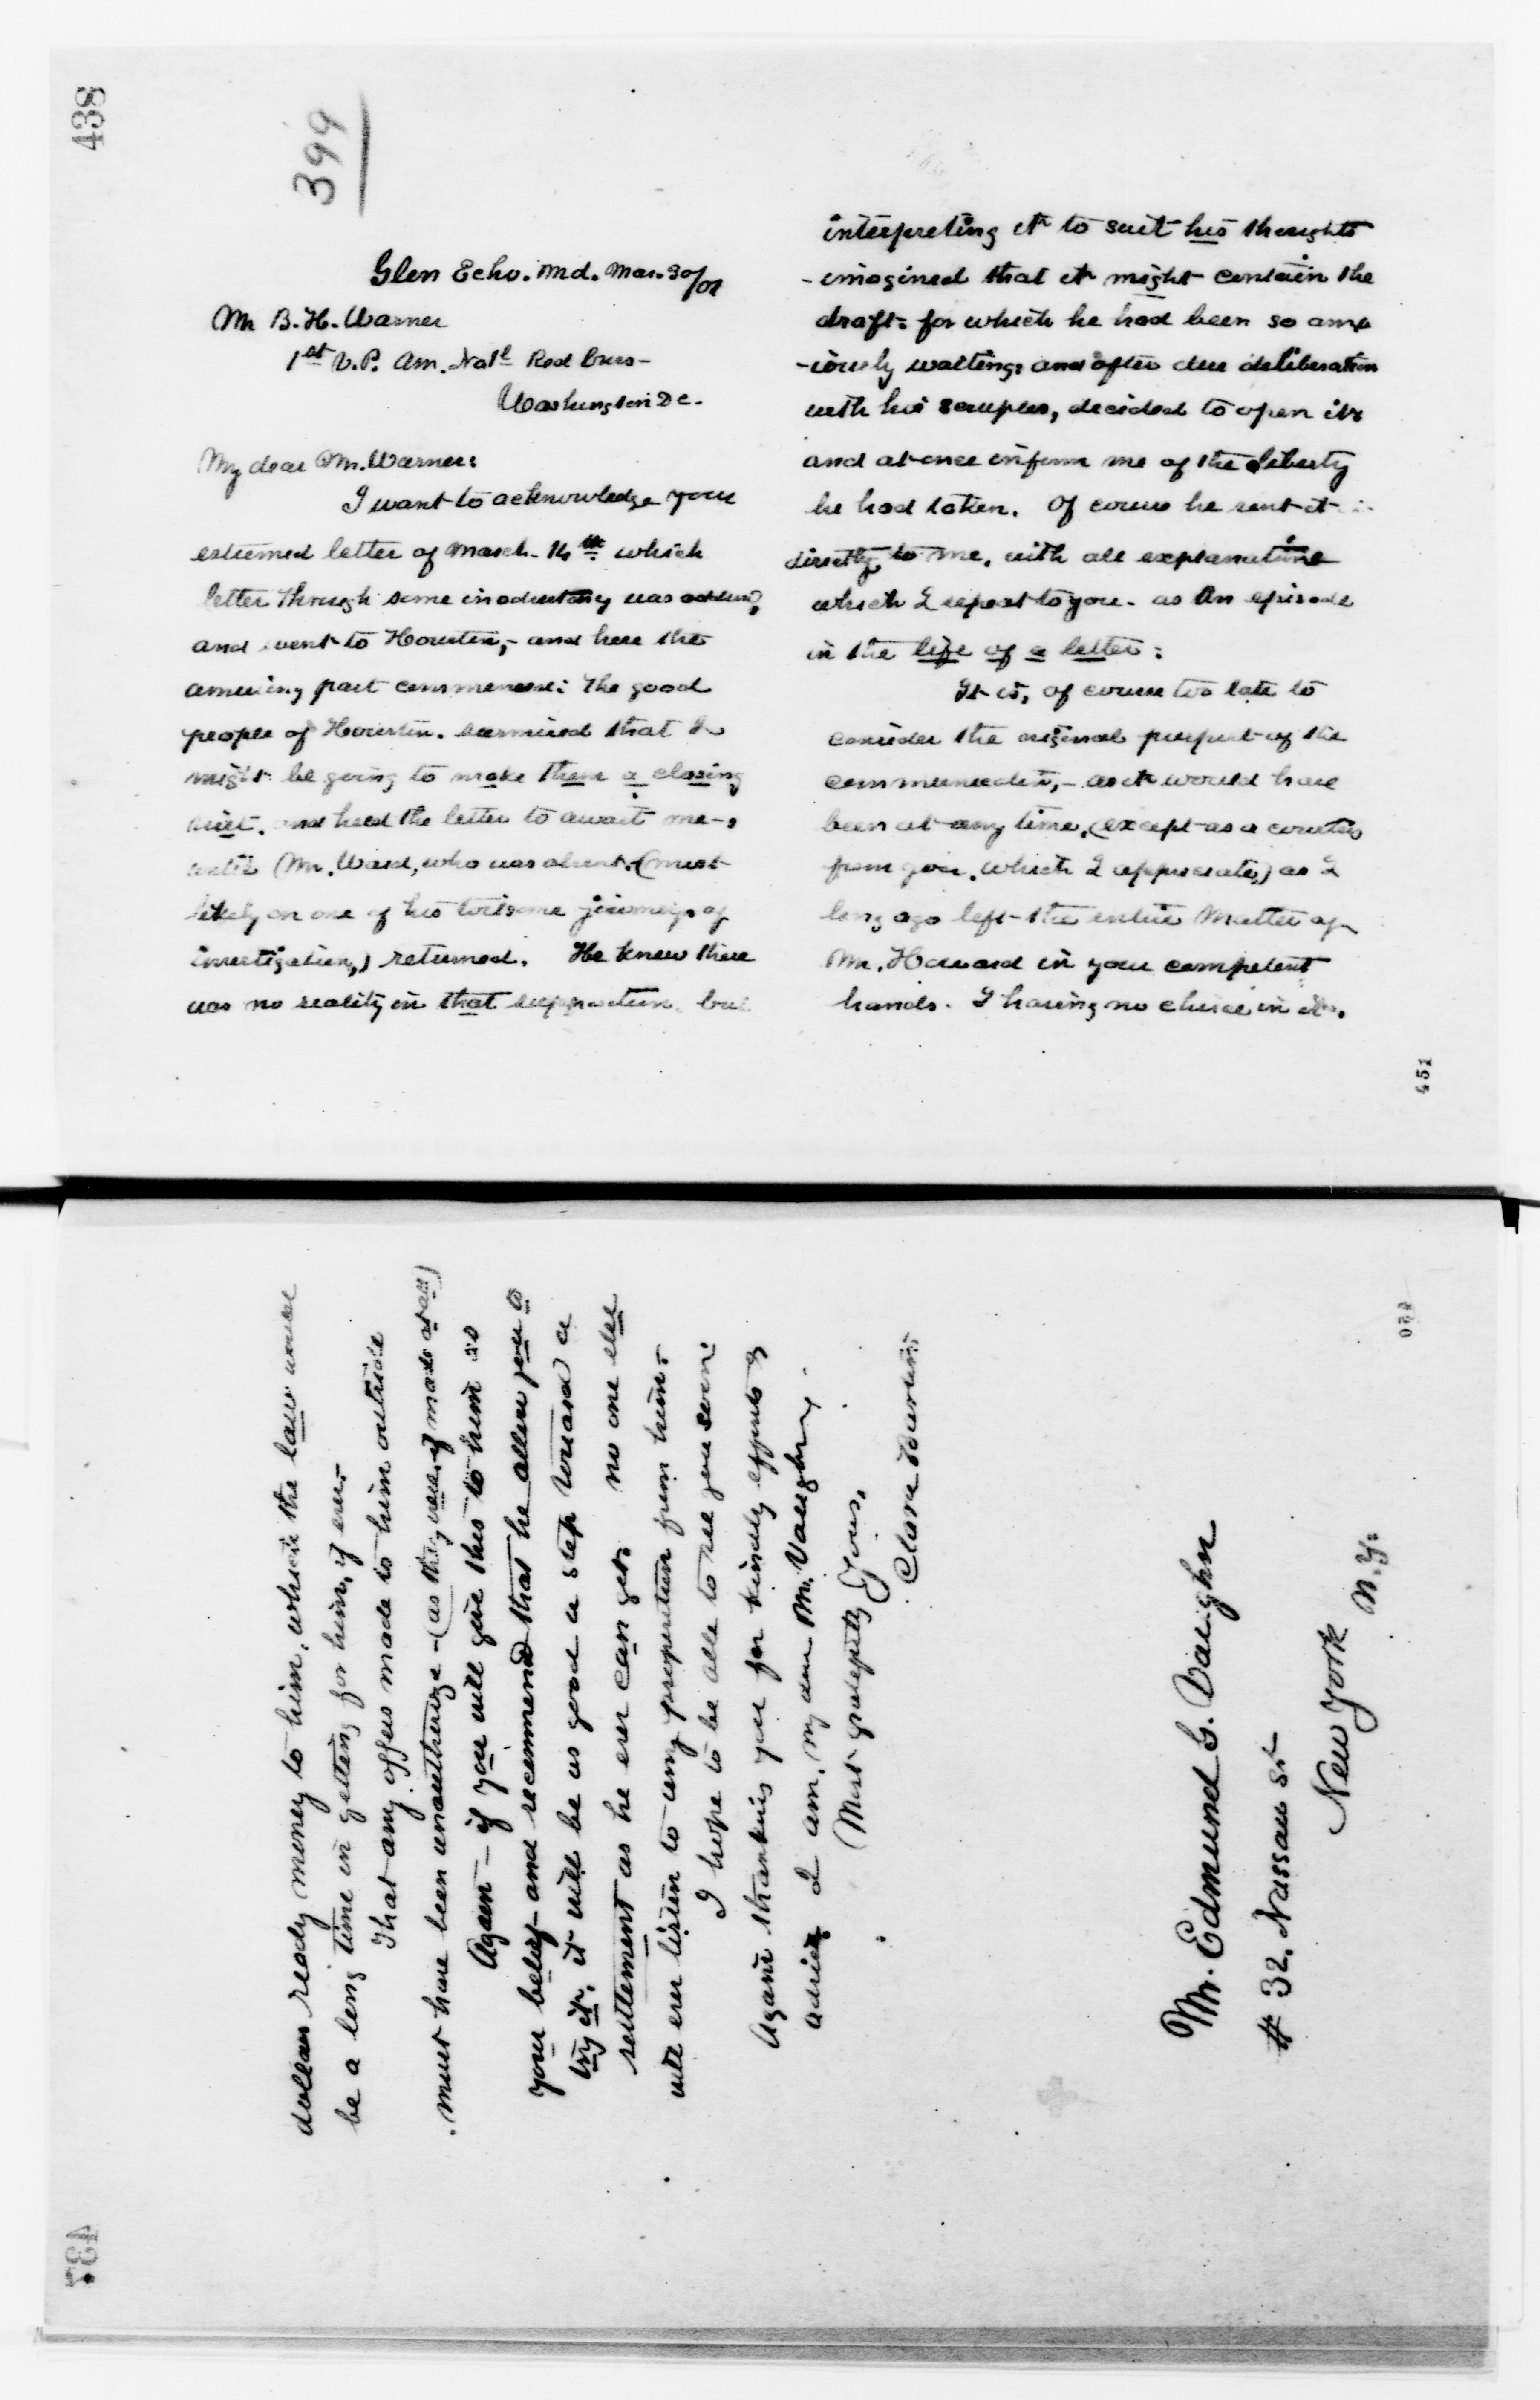 438
399
Glen Echo. Md. Mar. 30/01
Mr B. H. Warner
1st V. P. Am. Natl Red Cross -
Washington D C.
My dear Mr. Warner:
I want to acknowledge your
esteemed letter of March - 14th which
letter through some inadvertency was
and went to Houston, - and here the
amusing part commenced: The good
people of Houston. surmised that I
might be going to make them a closing
visit. and held the letter to await me -,
until Mr. Ward, who was absent. (most
likely on one of his toilsome journeys of
investigation,) returned. He knew there
was no reality in that supposition. but
interpreting it to suit his thoughts
- imagined that it might contain the
draft: for which he had been so anx
-iously waiting: and after due deliberation
with his scruples, decided to open it
and at once inform me of the liberty
he had taken. Of course he sent it
directly to me, with all explanations
which I repeat to you - as an episode
in the life of a letter:
It is, of course too late to
consider the original purport of the
communication, - as it would have
been at any time, (except as a courtesy
from you. which I appreciate,) as I
long ago left the entire matter of
Mr. Howard in your competent
hands. I having no choice in it.
451
dollars ready money to him, where the law would
be a long time in getting for him, if ever. -
That any offers made to him outside
must have been unauthorize - (as they were, if made at all)
Again - if you will give this to him as
your belief - and recommend that he allow you to
try it, it will be as good a step toward a
settlement as he ever can get. no one else
will ever listen to any proposition from him. -
I hope to be able to see you soon.
Again thanking you for kindly efforts &
advice I am, my dear Mr. Vaughn,
Most gratefully Yours,
Clara Barton
Mr. Edmund G. Vaughn
# 32. Nassau St
New York
N. Y.
450
437